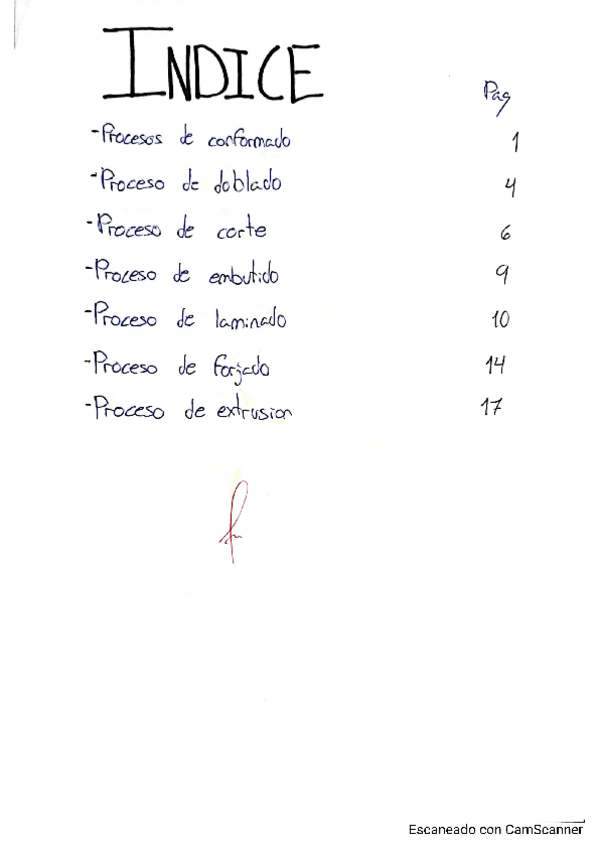 INDICE
Pag
-Procesos de conformado 1
-Proceso de doblado 4
-Proceso de corte 6
-Proceso de embutido 9
-Proceso de laminado 10
-Proceso de forjado 14
-Proceso de extrusion 17
Escaneado con CamScanner